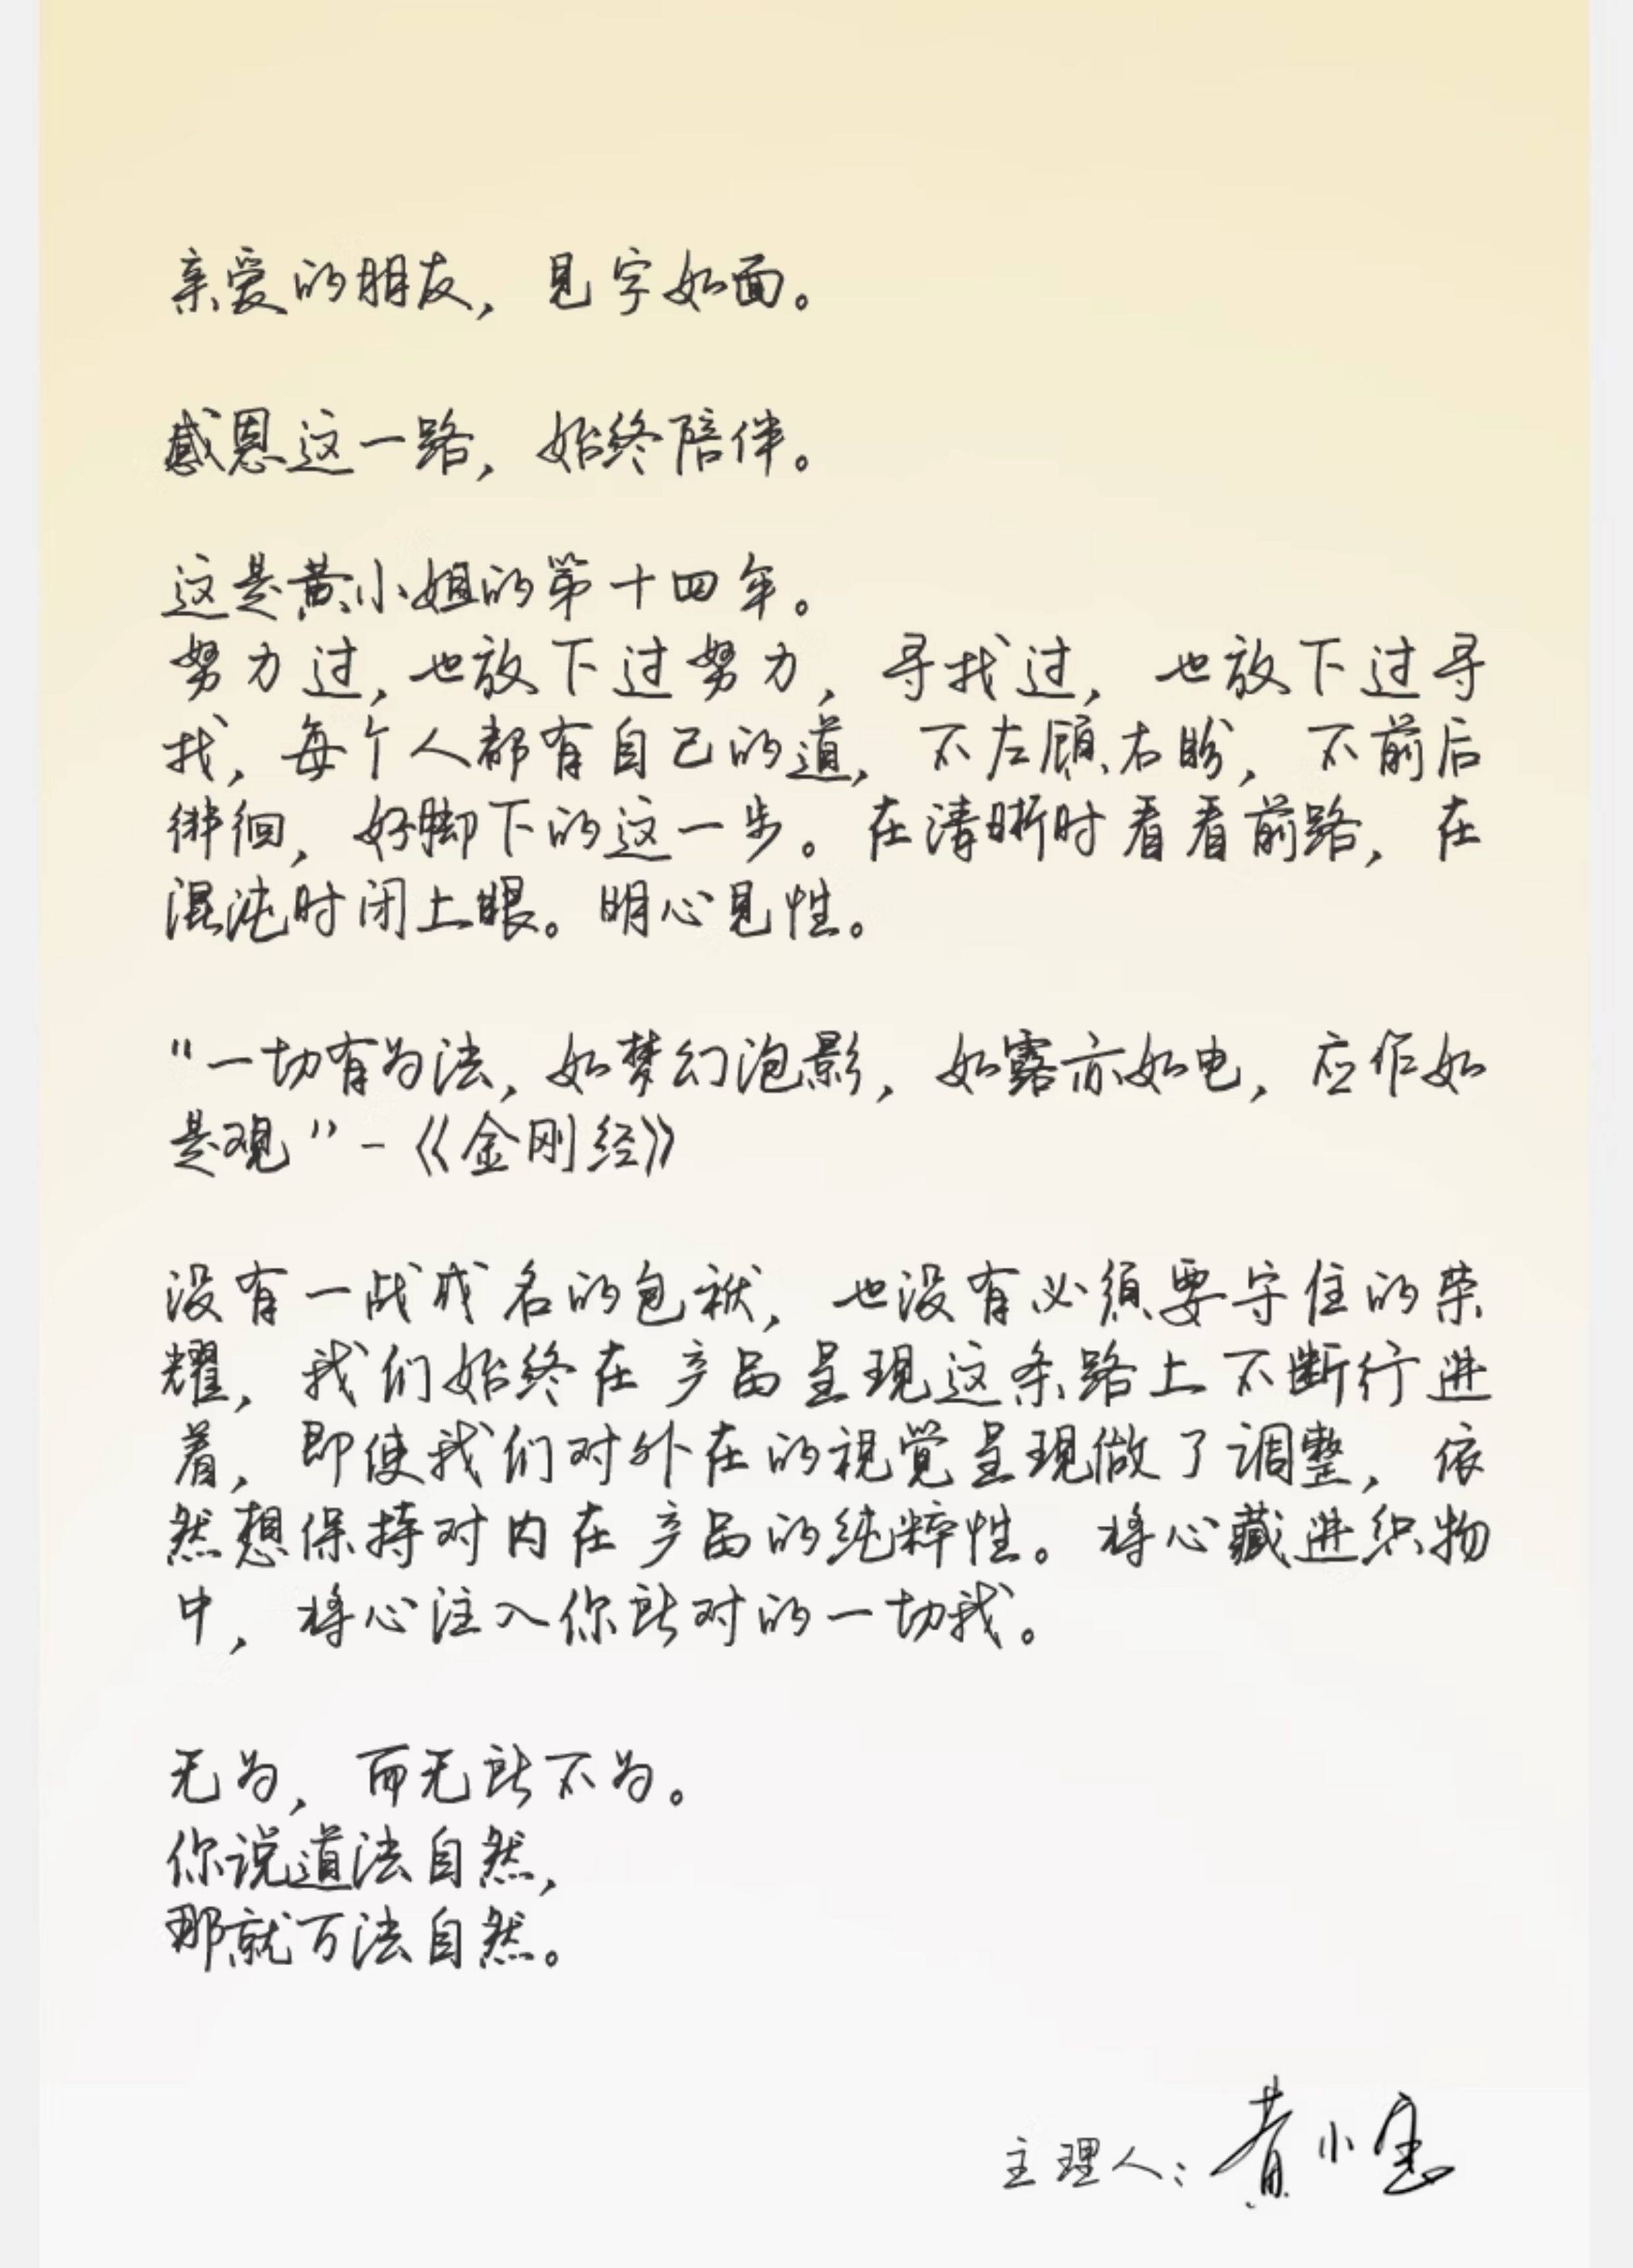 亲爱的朋友，见字如面。
感恩这一路，始终陪伴。
这是黄小姐的第十四年。
努力过，也放下过努力，寻找过，也放下过寻
找，每个人都有自己的道，不左顾右盼，不前后
徘徊，好脚下的这一步。在清晰时看看前路，在
混沌时闭上眼。明心见性。
"一切有为法，如梦幻泡影，如露亦如电，应作如
是观"-《金刚经》
没有一战成名的包袱，也没有必须要守住的荣
耀，我们始终在产品呈现这条路上不断行进
着，即使我们对外在的视觉呈现做了调整，依
然想保持对内在产品的纯粹性。将心藏进织物
中，将心注入你所对的一切我。
无为，而无所不为。
你说道法自然，
那就万法自然。
主理人：黄小